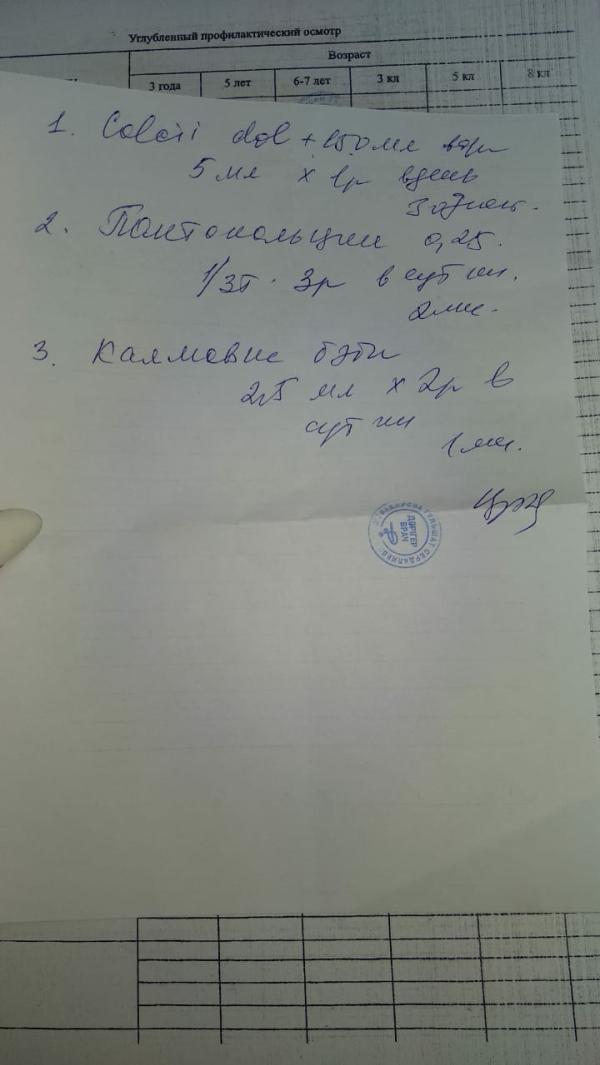 Углубленный профилактический осмотр
Возраст
3 года 5 лет 6-7 лет 3 кл 5 кл 8 кл
1. + 150 мл
5 мл х 1р в день
2. Пантокальцин 0,25.
1/3т. 3р в сутки.
2 мес.
3. Калмовис бэби
2,5 мл х 2р в
сутки
1 мес.
ДӘРІГЕР
ВРАЧ